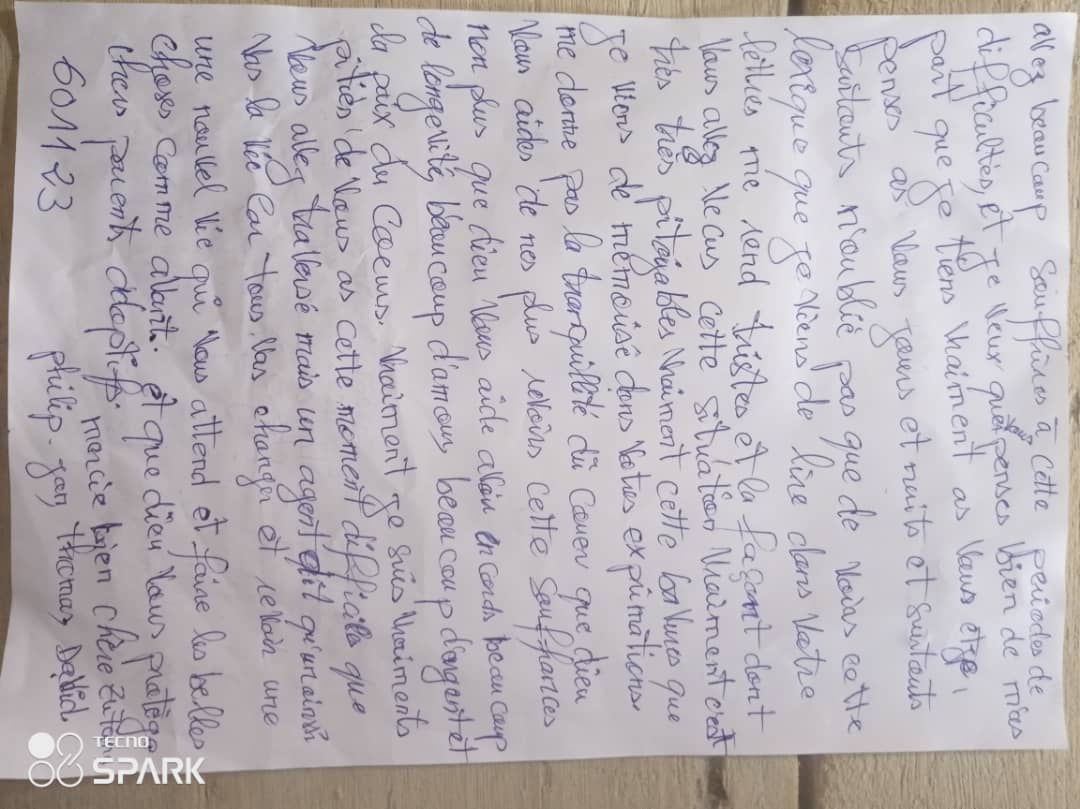 avez beaucoup souffrires à cette periodes de
difficultés, et je veux que vous penses bien de mises
part que je tiens vraiment as vous et je
penses as vous jours et nuits et surtouts
surtouts n'oublié pas que de vous cette
lexique que je viens de lire dans votre
lettres me rend tristes et la façont dont
vous allez vecus cette situation vraiment c'est
très très pitoyables vraiment cette que
je viens de mémorisé dans votres exprimations
me donne pas la tranquillité du coeur que dieu
vous aides de nes plus revoirs cette souffrances
non plus que dieu vous aide avoir encords beaucoup
de longevité, beaucoup d'amour, beaucoup d'argent et
la paix du Coeurs. vraiment je suis vraiments
pitiés de vous as cette moment difficiles que
vous allez traversé mais un agent dit qu'un
vas la vie car tous vas changer et revoir une
une nouvel vie qui vous attend et faire les belles
choses comme avant. et que dieu vous protège
chers parents adoptifs. mercie bien chère
philip-gar, thomas, David.
601123
TECNO
SPARK